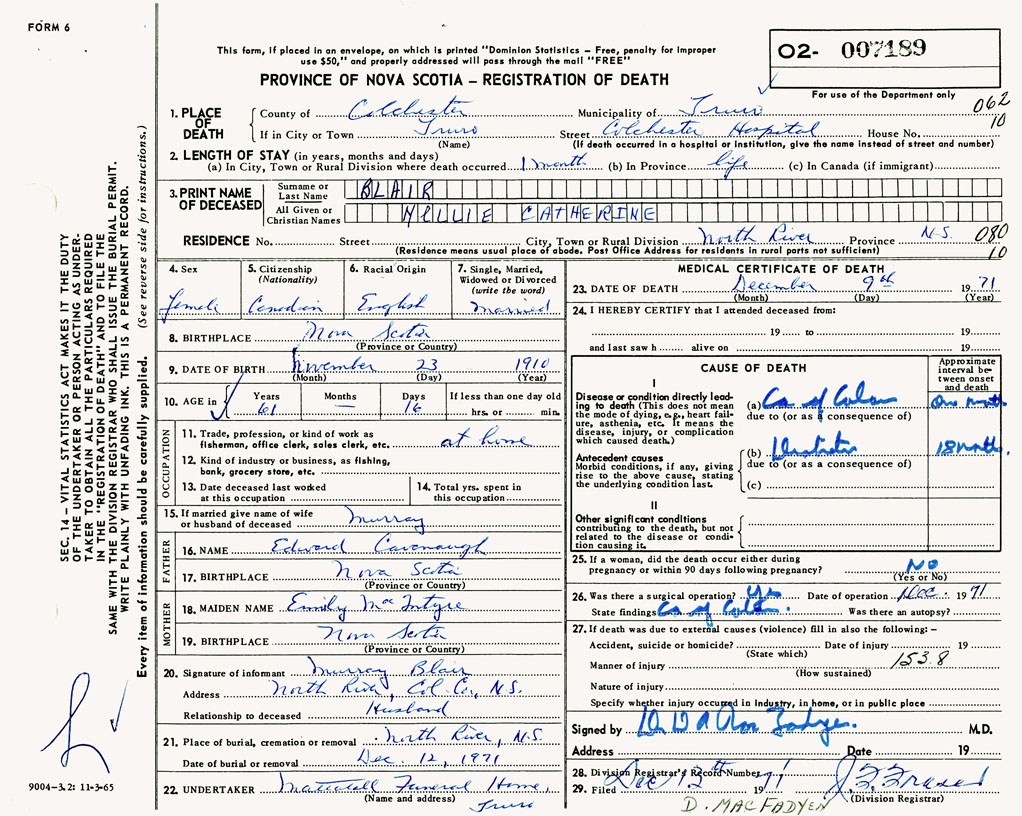 FORM 6
This form, if placed in an envelope, on which is printed "Dominion Statistics – Free, penalty for improper
use $50," and properly addressed will pass through the mail "FREE"
PROVINCE OF NOVA SCOTIA – REGISTRATION OF DEATH
02- 007189
For use of the Department only
1. PLACE OF DEATH County of Colchester Municipality of Truro 062
If in City or Town Truro Street Colchester Hospital House No. 10
(Name) (If death occurred in a hospital or institution, give the name instead of street and number)
2. LENGTH OF STAY (in years, months and days)
(a) In City, Town or Rural Division where death occurred 1 month (b) In Province life (c) In Canada (if immigrant)
3. PRINT NAME OF DECEASED Surname or Last Name BLAIR
All Given or Christian Names NELLIE CATHERINE
RESIDENCE No. Street City, Town or Rural Division North River Province N.S. 080
(Residence means usual place of abode. Post Office Address for residents in rural parts not sufficient) 10
4. Sex Female
5. Citizenship (Nationality) Canadian
6. Racial Origin English
7. Single, Married, Widowed or Divorced (write the word) married
8. BIRTHPLACE Nova Scotia
(Province or Country)
9. DATE OF BIRTH November 23 1910
(Month) (Day) (Year)
10. AGE in Years 61 Months — Days 16 If less than one day old hrs. or min.
OCCUPATION
11. Trade, profession, or kind of work as
fisherman, office clerk, sales clerk, etc. at home
12. Kind of industry or business, as fishing,
bank, grocery store, etc.
13. Date deceased last worked
at this occupation
14. Total yrs. spent in
this occupation
15. If married give name of wife
or husband of deceased Murray
FATHER
16. NAME Edward Cavenaugh
17. BIRTHPLACE Nova Scotia
(Province or Country)
MOTHER
18. MAIDEN NAME Emily MacIntyre
19. BIRTHPLACE Nova Scotia
(Province or Country)
20. Signature of informant Murray Blair
Address North River, Col. Co., N.S.
Relationship to deceased Husband
21. Place of burial, cremation or removal North River, N.S.
Date of burial or removal Dec. 12, 1971
22. UNDERTAKER Mattatall Funeral Home,
(Name and address) Truro
MEDICAL CERTIFICATE OF DEATH
23. DATE OF DEATH December 9th 1971
(Month) (Day) (Year)
24. I HEREBY CERTIFY that I attended deceased from:
19 to 19
and last saw h alive on 19
CAUSE OF DEATH
Approximate interval between onset and death
I
Disease or condition directly leading to death (This does not mean the mode of dying, e.g., heart failure, asthenia, etc. It means the disease, injury, or complication which caused death.)
(a) Ca of Colon One month
due to (or as a consequence of)
Antecedent causes
Morbid conditions, if any, giving rise to the above cause, stating the underlying condition last.
(b) 18 months
due to (or as a consequence of)
(c)
II
Other significant conditions
contributing to the death, but not related to the disease or condition causing it.
25. If a woman, did the death occur either during
pregnancy or within 90 days following pregnancy? No
(Yes or No)
26. Was there a surgical operation? Yes Date of operation Dec. 1971
State findings Ca of Colon. Was there an autopsy?
27. If death was due to external causes (violence) fill in also the following: –
Accident, suicide or homicide? Date of injury 19
(State which) 153.8
Manner of injury
(How sustained)
Nature of injury
Specify whether injury occurred in industry, in home, or in public place
Signed by M.D.
Address Date 19
28. Division Registrar's Record Number
29. Filed Dec 13th 1971 J. F. Fraser
(Division Registrar)
D. MACFADYEN
SEC. 14 – VITAL STATISTICS ACT MAKES IT THE DUTY
OF THE UNDERTAKER OR PERSON ACTING AS UNDER-
TAKER TO OBTAIN ALL THE PARTICULARS REQUIRED
IN THE "REGISTRATION OF DEATH" AND TO FILE THE
SAME WITH THE DIVISION REGISTRAR WHO SHALL ISSUE THE BURIAL PERMIT.
WRITE PLAINLY WITH UNFADING INK. THIS IS A PERMANENT RECORD.
Every item of information should be carefully supplied. (See reverse side for instructions.)
9004-3.2: 11-3-65